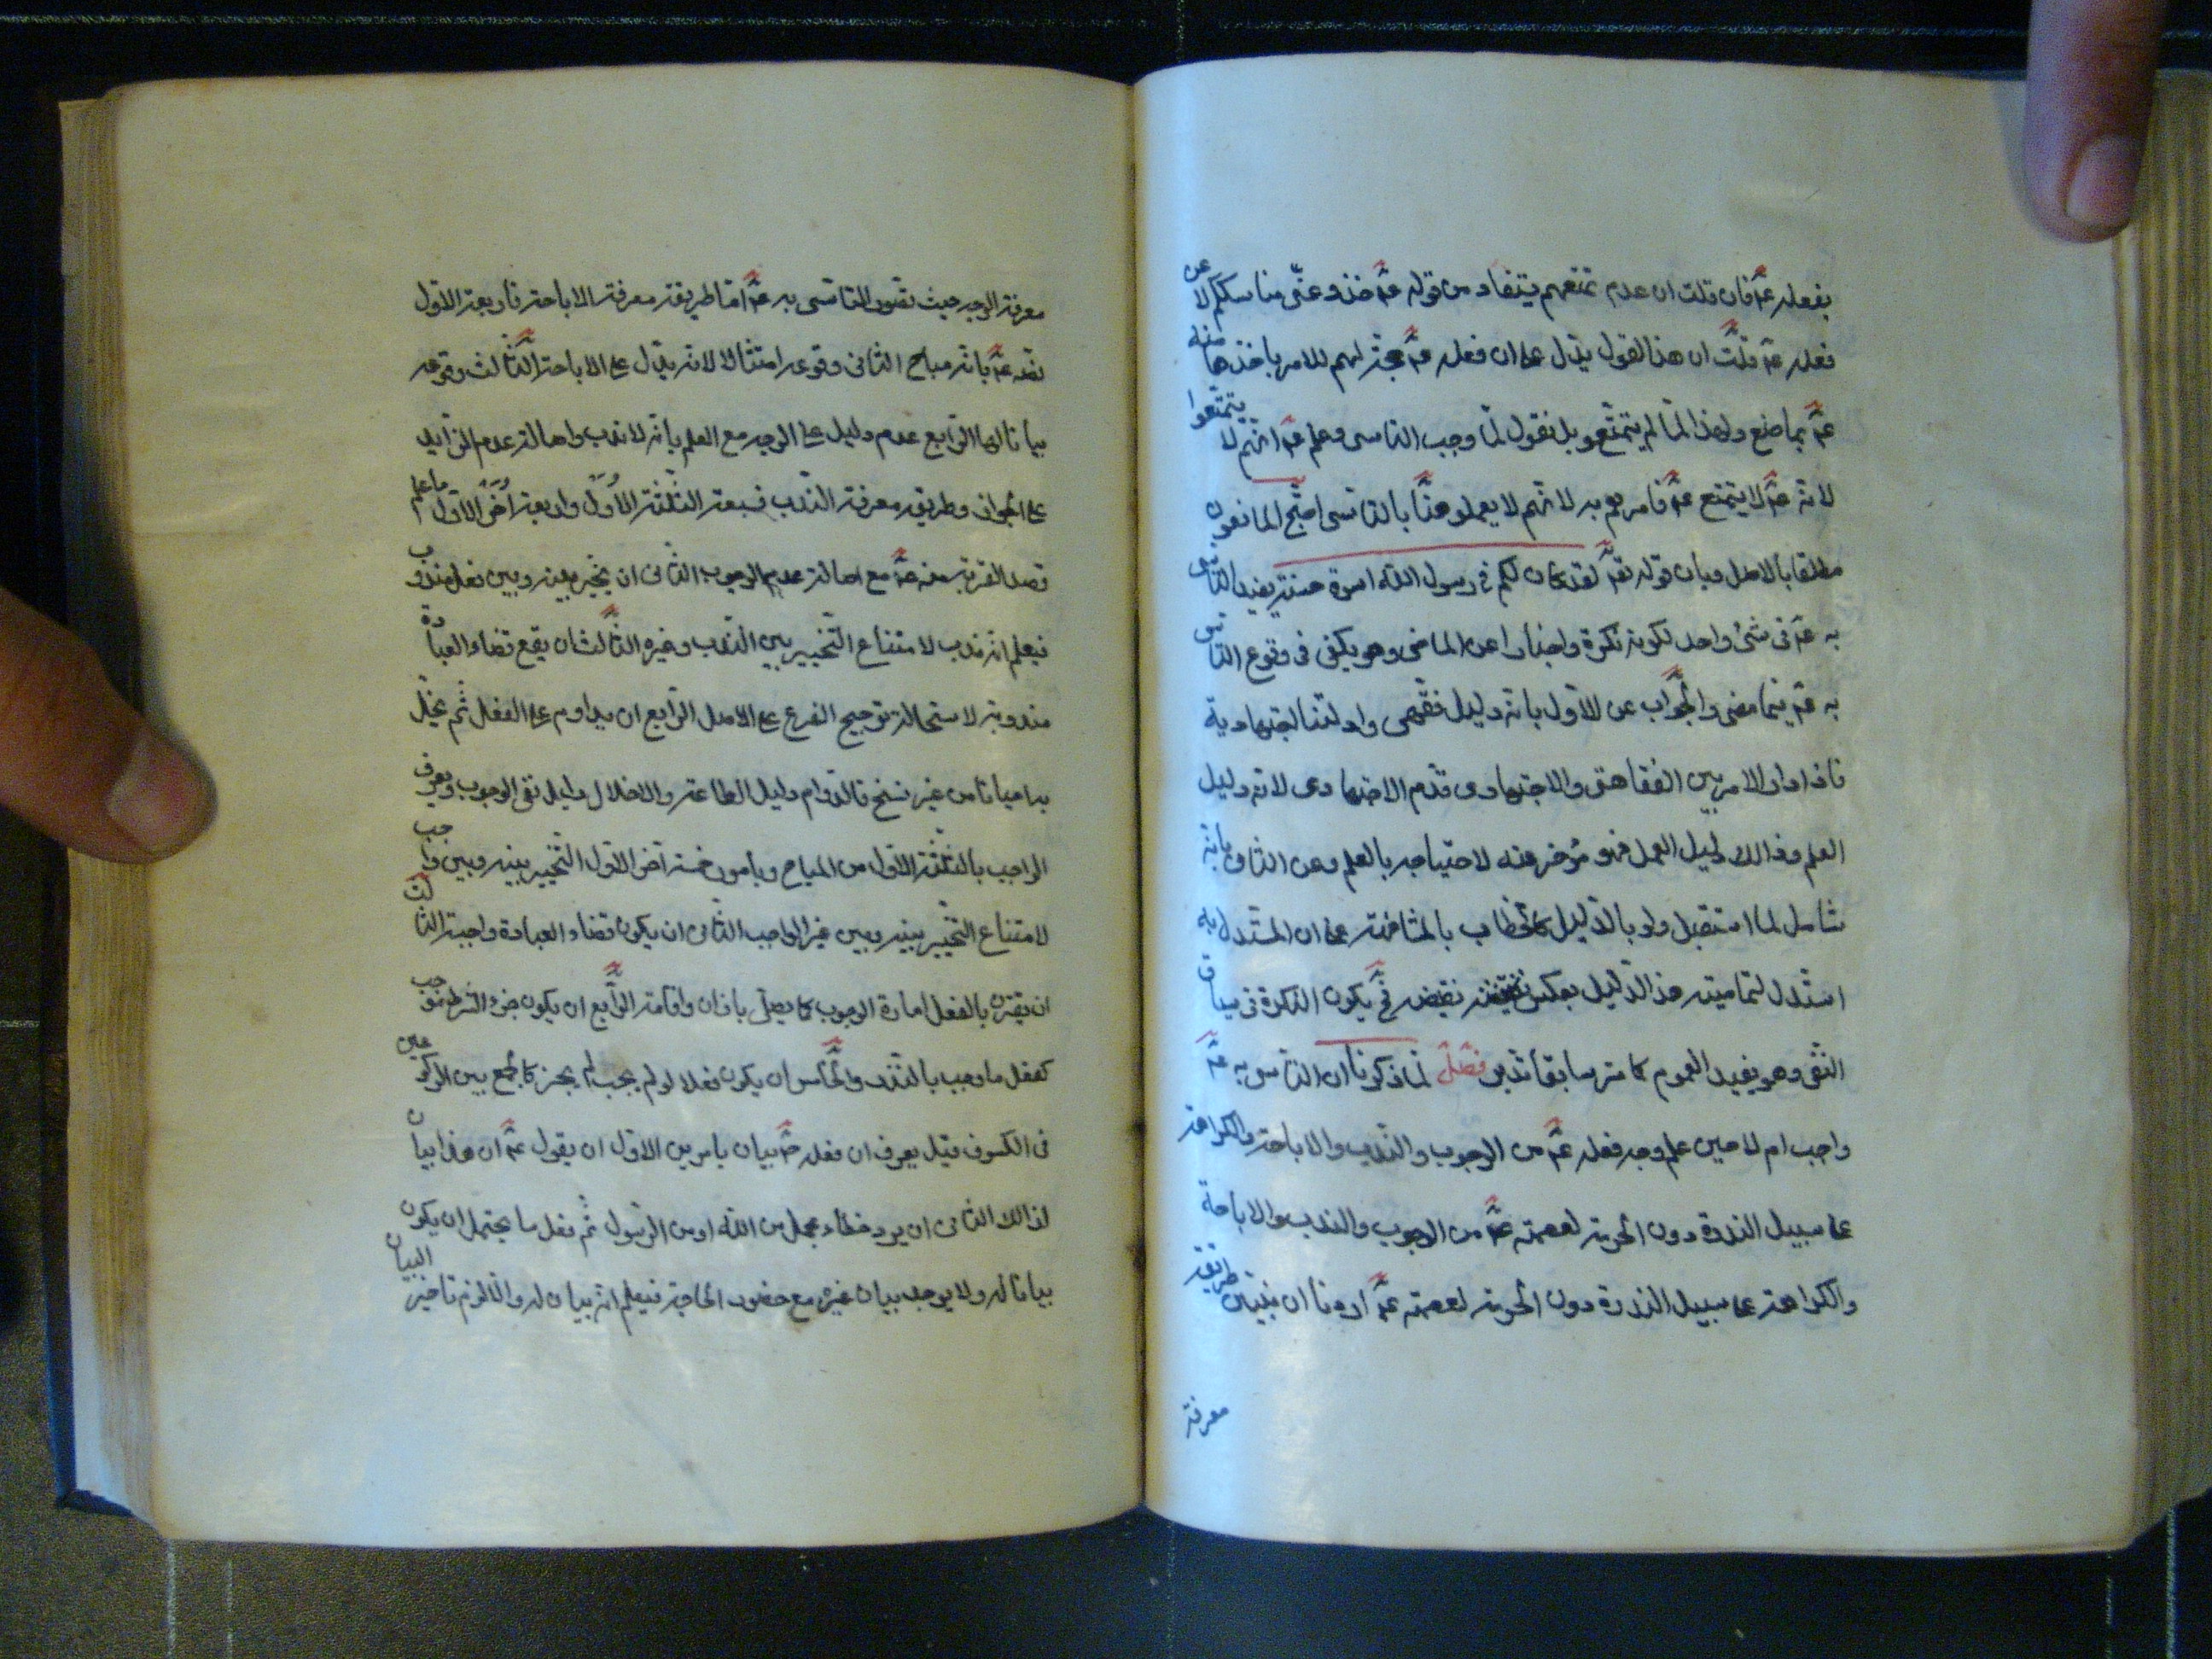 بفعله عم فان قلت ان عدم تمتعهم يتفاد من قوله عم خذوعنّى مناسككم لا عن
فعله عم قلت ان هذا القول يدل على ان فعله عم حجة لهم للامر باخذها منه
عم بما صنع ولهذا لمّا لم يتمتّعو بل نقول لمّا وجب التاسى وعلم عم انهم لا يتمتّعوا
لانه عم لا يتمتع عم فامرهم به لانهم لا يعملو هنّا بالتاسى احتج المانعون
مطلقا بالاصل وبان قوله تع لقد كان لكم فى رسول الله اسوة حسنة يفيد التاسى
به عم فى شئ واحد لكونه نكرة واخبارا عن الماضى وهو يكفى فى وقوع التاسى
به عم فيما مضى والجواب عن الاول بانه دليل فقهى وادلتنا اجتهادية
فاذا دار الامر بين الفقاهتى والاجتهادى قدّم الاجتهادى لانه دليل
العلم وذالك دليل العمل فهو مؤخر عنه لاحتياجه بالعلم وعن الثانى بانه
شامل لما استقبل ولو بالدليل كالخطاب بالمشافهة على ان المستدل به
استدل لتماميته هذ الدّليل بعكس نقيضه فح يكون النكرة فى سياق
النفى وهو يفيد العموم كما مر سابقا تدبر فصل لما ذكرنا ان التاسى به عم
واجب ام لا حين علم وجه فعله عم من الوجوب والندب والاباحة والكراهة
على سبيل الندرة دون الحرمة لعصمته عم من الوجوب والندب والاباحة
والكراهة على سبيل الندرة دون الحرمة لعصمته عم اردنا ان نبين طريقة
معرفة
معرفة الوجه حيث نقول للتاسى به عم امّا طريقة معرفة الاباحة فاربعة الاول
نصه عم بانه مباح الثانى وقوعه امتثالا لانه يدل على الاباحة الثالث وقوعه
بيانا لها الرابع عدم دليل على الوجه مع العلم بانه لا ندب واصالة عدم الزايد
على الجواز وطريقة معرفة الندب فسبعة الثلثة الاول واربعة اخر الاول ما علم
قصد القربة منه عم مع اصالة عدم الوجوب الثانى ان يخير بينه وبين فعل مندوب
فيعلم انه ندب لامتناع التخيير بين الندب وغيره الثالث ان يقع قضاء لعبادة
مندوبة لاستحالة ترجيح الفرع على الاصل الرابع ان يداوم على الفعل ثم يخلّ
به احيانا من غير نسخ فالدوام دليل الطاعة والاخلال دليل نفى الوجوب ويعرف
الواجب بالثلثة الاول من المباح وبامور خمسة اخر الاول التخيير بينه وبين واجب
لامتناع التخيير بينه وبين غير الواجب الثانى ان يكون قضاء لعبادة واجبة الثالث
ان يقترن بالفعل امارة الوجوب كما يصلّى باذان واقامة الرّابع ان يكون جزاء لشرط موجب
كفعل ما وجب بالنذر والخامس ان يكون فعلا لو لم يجب لم يجز كالجمع بين الركوعين
فى الكسوف قيل يعرف ان فعله عم بيان بامرين الاول ان يقول عم ان هذا بيان
لذالك الثانى ان يرد خطاب مجمل من الله او من الرسول ثم فعل ما يحتمل ان يكون
بيانا له ولا يوجد بيان غيره مع حضور الحاجة فيعلم انه بيان له والّا لزم تاخير البيان